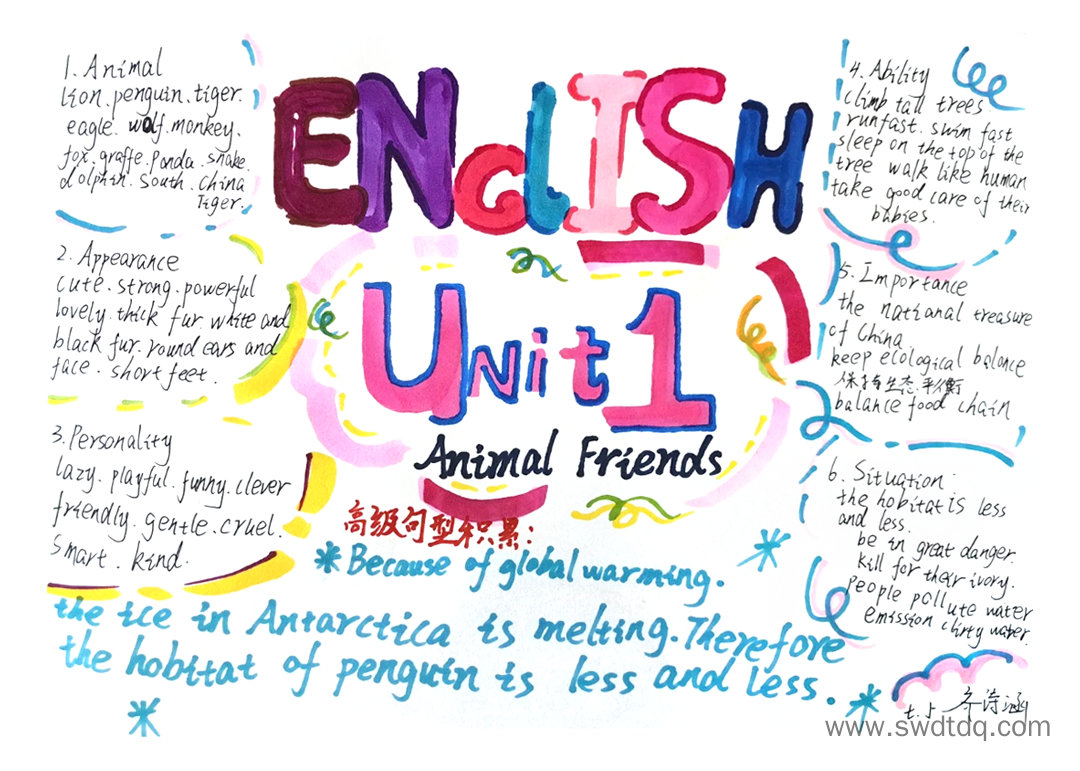 ENGLISH
Unit 1
Animal Friends
1. Animal
lion.penguin.tiger.
eagle. wolf.monkey.
fox.graffe.panda.snake.
dolphin.South.China
Tiger.
2. Appearance
cute.strong.powerful
lovely.thick fur.white and
black fur.round ears and
face.short feet.
3.Personality
lazy.playful.funny.clever
friendly.gentle.cruel.
smart.kind.
4. Ability
climb tall trees
runfast. swim fast
sleep on the top of the
tree walk like human
take good care of their
babies.
5. Importance
the national treasure
of China
keep ecological balance
保持生态平衡
balance food chain
6. Situation
the hobitat is less
and less.
be in great danger.
kill for their ivory.
people pollute water
emission dirty water.
高级句型积累:
*Because of global warming.
the ice in Antarctica is melting.Therefore
the hobitat of penguin is less and less.
诗涵
www.swdtdq.com